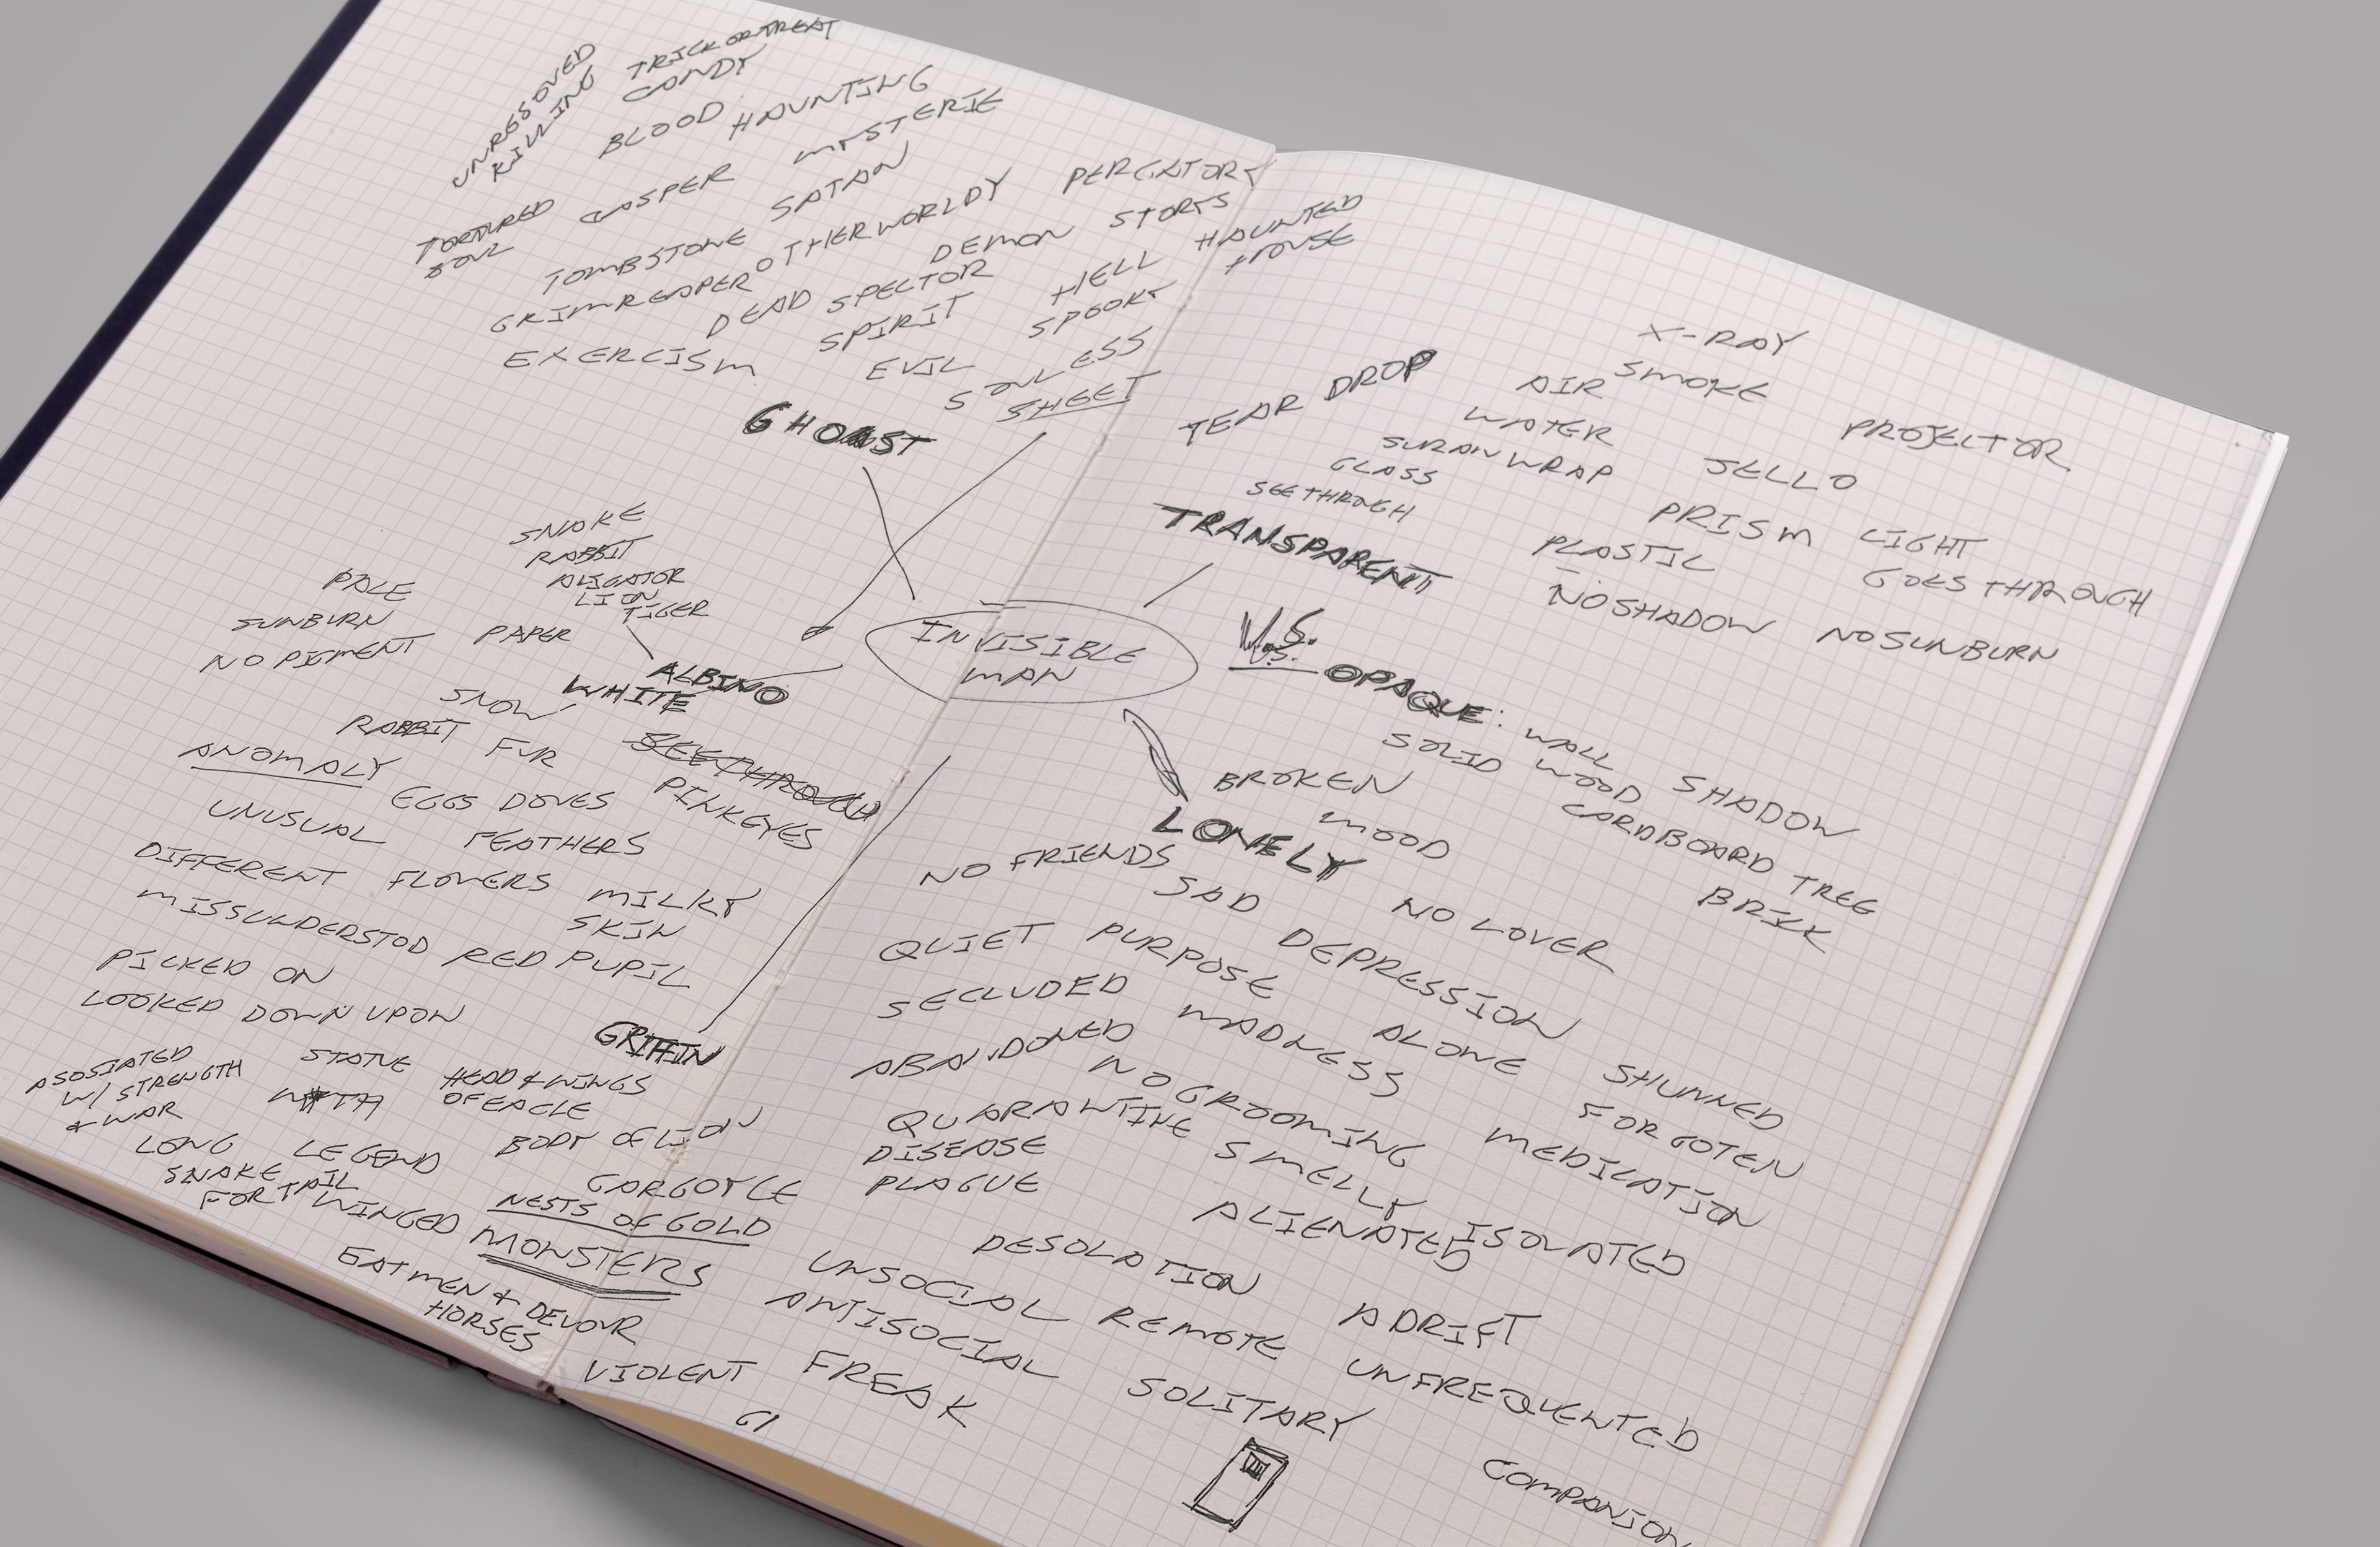 UNRESOVED
KILLING
TRICK OR TREAT
CANDY
BLOOD
HAUNTING
MYSTERIE
TORTURED
SOUL
CASPER
SATAN
TOMBSTONE
OTHERWORLDY
PERGATORY
GRIMREAPER
DEMON
STORYS
HAUNTED
HOUSE
DEAD
SPECTOR
HELL
EXERCISM
SPIRIT
SPOOKY
EVIL
SOULESS
SHEET
GHOST
SNAKE
RABBIT
ALIGATOR
LION
TIGER
PALE
SUNBURN
NO PIGMENT
PAPER
ALBINO
WHITE
SNOW
RABBIT FUR
SEETHROUGH
ANOMALY
EGGS DOVES
PINKEYES
UNUSUAL
FEATHERS
DIFFERENT
FLOWERS
MILKY
SKIN
MISSUNDERSTOD
RED PUPIL
PICKED ON
LOOKED DOWN UPON
INVISIBLE
MAN
GRIFFIN
ASOSIATED
W/ STRENGTH
& WAR
STATUE
HEAD & WINGS
OF EAGLE
MYTH
BODY OF LION
LONG
SNAKE
FOR TAIL
LEGEND
GARGOYLE
NESTS OF GOLD
WINGED
MONSTERS
EAT MEN & DEVOUR
HORSES
X-RAY
SMOKE
TEAR DROP
AIR
WATER
PROJECTOR
SURAN WRAP
JELLO
GLASS
SEE THROUGH
PRISM
LIGHT
GOES THROUGH
TRANSPARENT
PLASTIC
NO SHADOW
NO SUNBURN
V.S.
V.S.
OPAQUE: WALL
SOLID
WOOD
SHADOW
CARDBOARD
TREE
BRIKK
BROKEN
MOOD
LONELY
NO FRIENDS
SAD
NO LOVER
QUIET
PURPOSE
DEPRESSION
SECLUDED
MADNESS
ALONE
SHUNNED
ABANDONED
NO GROOMING
FORGOTEN
QUARANTINE
MEDICATION
DISEASE
SMELLY
PLAGUE
ALIENATED
ISOLATED
DESOLATION
UNSOCIAL
ADRIFT
ANTISOCIAL
REMOTE
UNFREQUENTED
VIOLENT
FREAK
SOLITARY
COMPANION